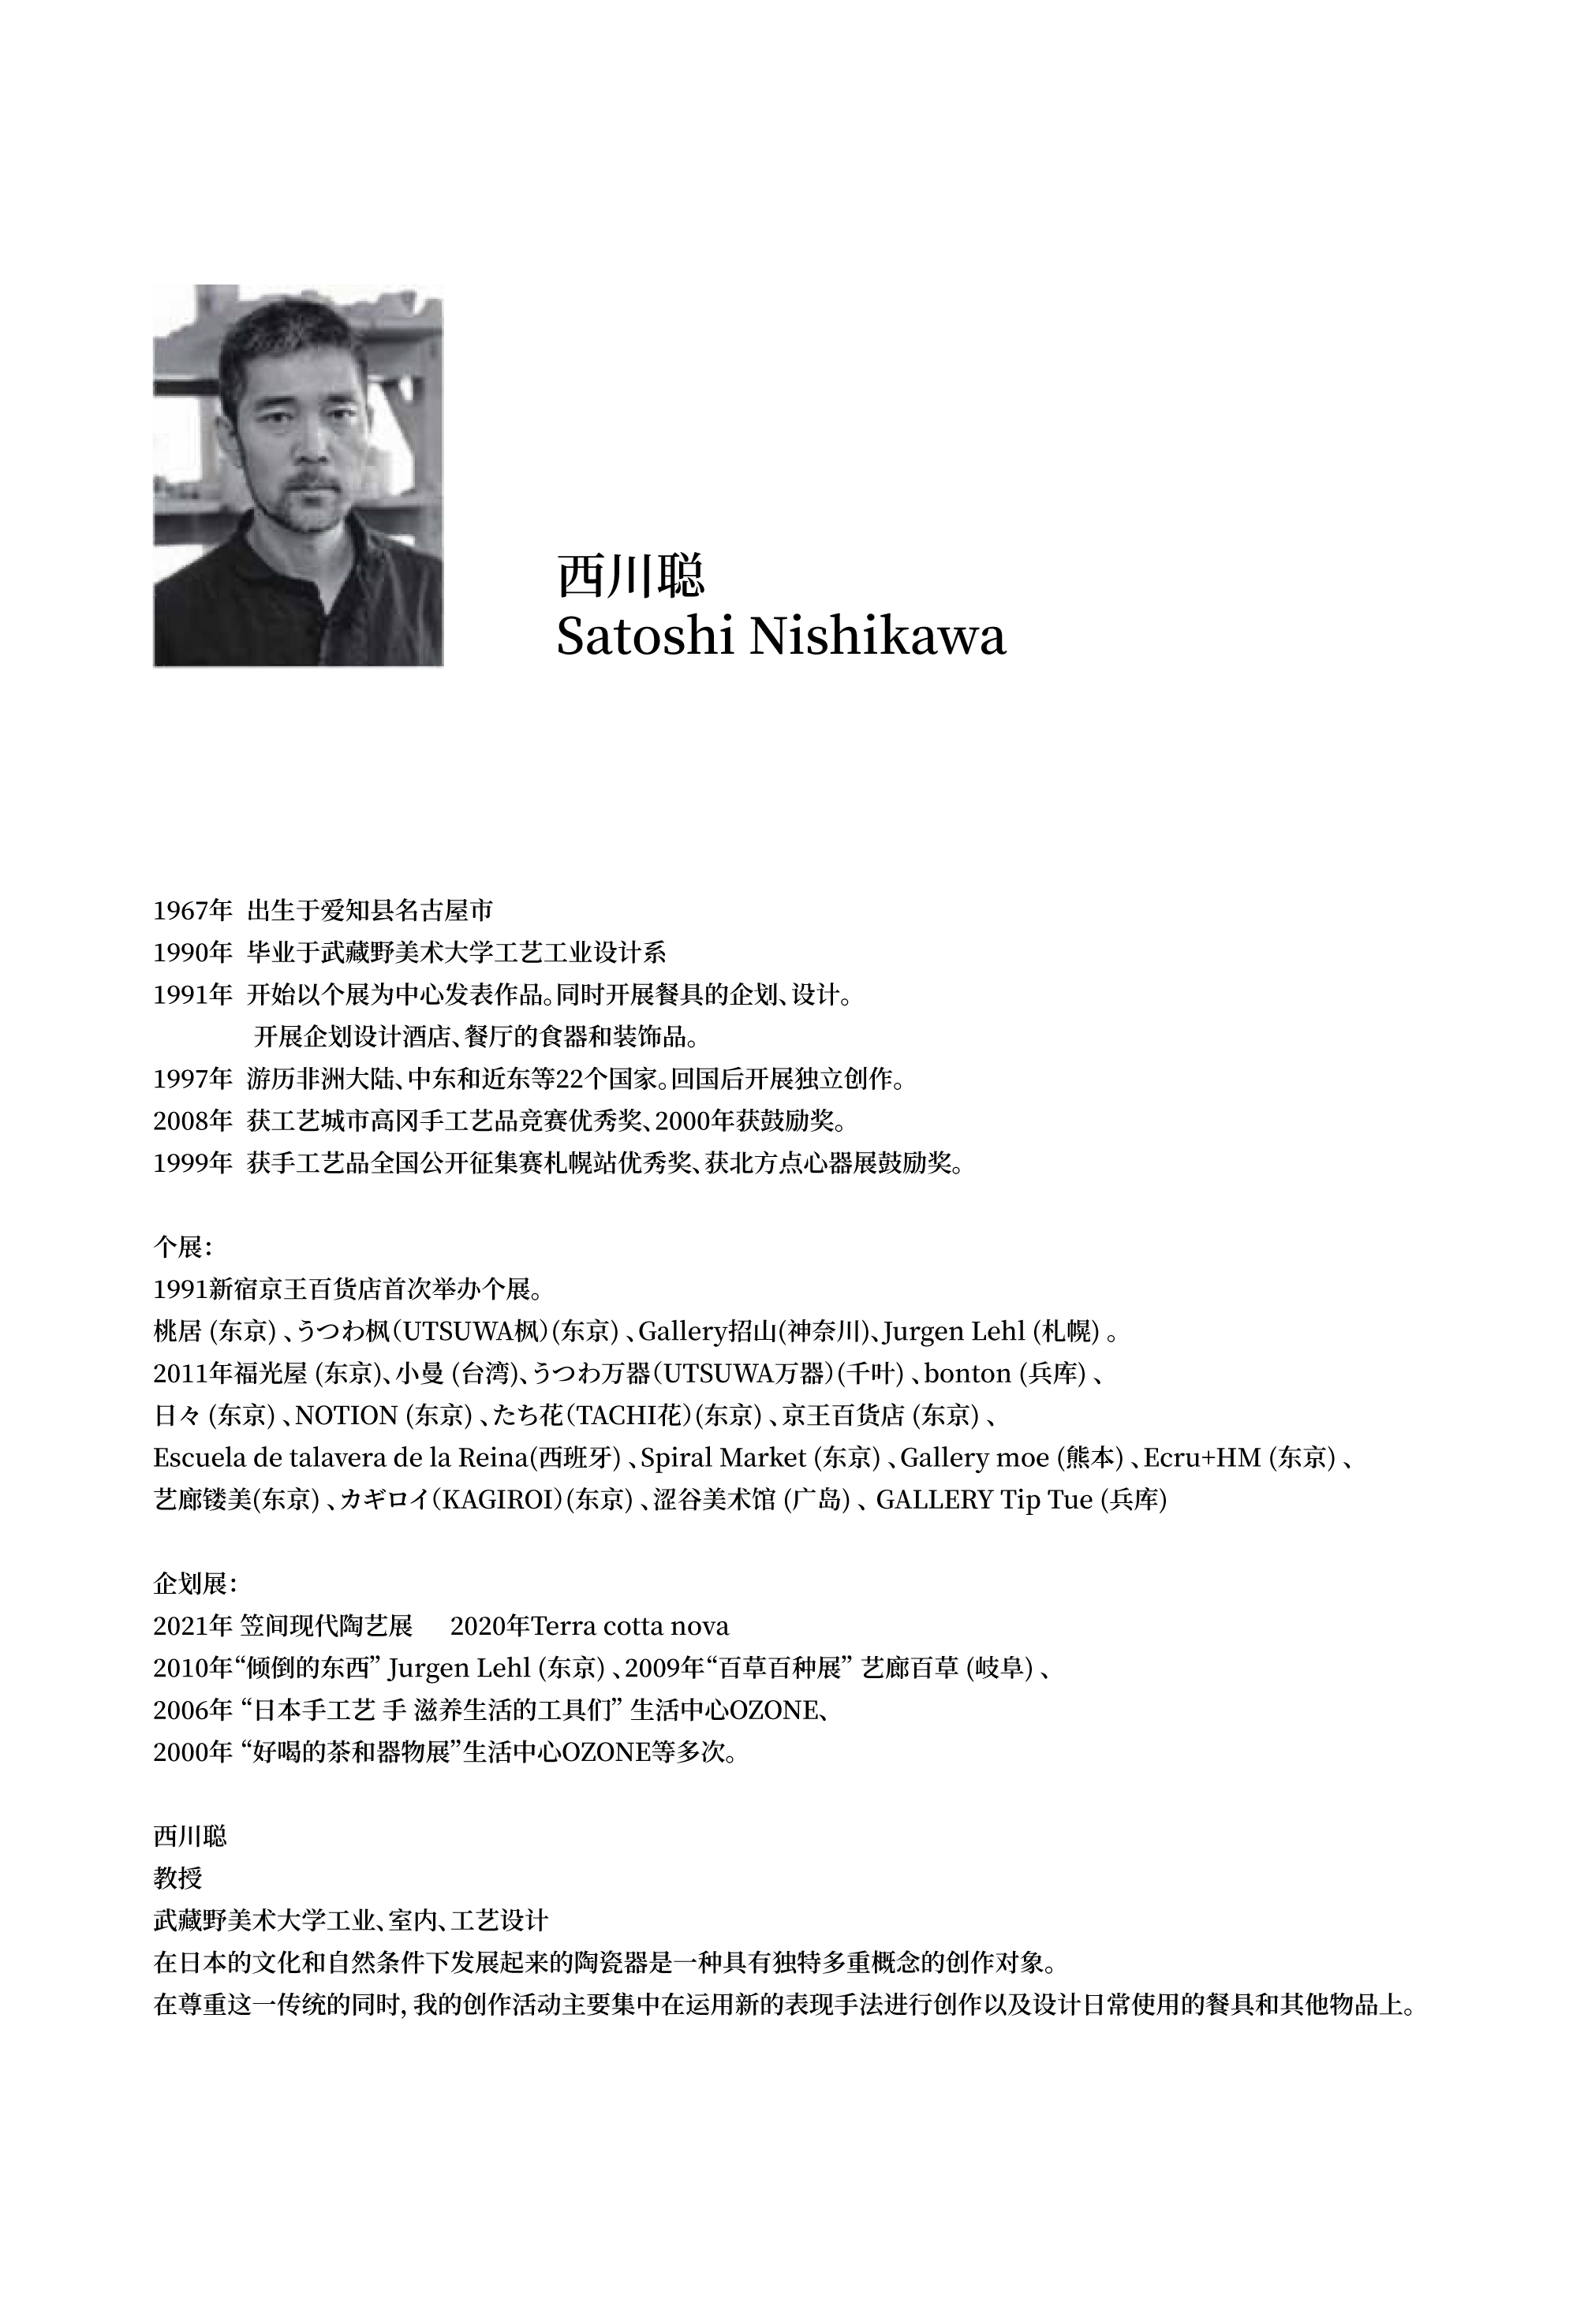 西川聪
Satoshi Nishikawa
1967年 出生于爱知县名古屋市
1990年 毕业于武藏野美术大学工艺工业设计系
1991年 开始以个展为中心发表作品。同时开展餐具的企划、设计。
开展企划设计酒店、餐厅的食器和装饰品。
1997年 游历非洲大陆、中东和近东等22个国家。回国后开展独立创作。
2008年 获工艺城市高冈手工艺品竞赛优秀奖、2000年获鼓励奖。
1999年 获手工艺品全国公开征集赛札幌站优秀奖、获北方点心器展鼓励奖。
个展：
1991新宿京王百货店首次举办个展。
桃居 (东京) 、うつわ枫（UTSUWA枫）(东京) 、Gallery招山(神奈川)、Jurgen Lehl (札幌) 。
2011年福光屋 (东京)、小曼 (台湾)、うつわ万器（UTSUWA万器）(千叶) 、bonton (兵库) 、
日々 (东京) 、NOTION (东京) 、たち花（TACHI花）(东京) 、京王百货店 (东京) 、
Escuela de talavera de la Reina(西班牙) 、Spiral Market (东京) 、Gallery moe (熊本) 、Ecru+HM (东京) 、
艺廊镂美(东京) 、カギロイ（KAGIROI）(东京) 、涩谷美术馆 (广岛) 、 GALLERY Tip Tue (兵库)
企划展：
2021年 笠间现代陶艺展 2020年Terra cotta nova
2010年“倾倒的东西” Jurgen Lehl (东京) 、2009年“百草百种展” 艺廊百草 (岐阜) 、
2006年 “日本手工艺 手 滋养生活的工具们” 生活中心OZONE、
2000年 “好喝的茶和器物展”生活中心OZONE等多次。
西川聪
教授
武藏野美术大学工业、室内、工艺设计
在日本的文化和自然条件下发展起来的陶瓷器是一种具有独特多重概念的创作对象。
在尊重这一传统的同时, 我的创作活动主要集中在运用新的表现手法进行创作以及设计日常使用的餐具和其他物品上。